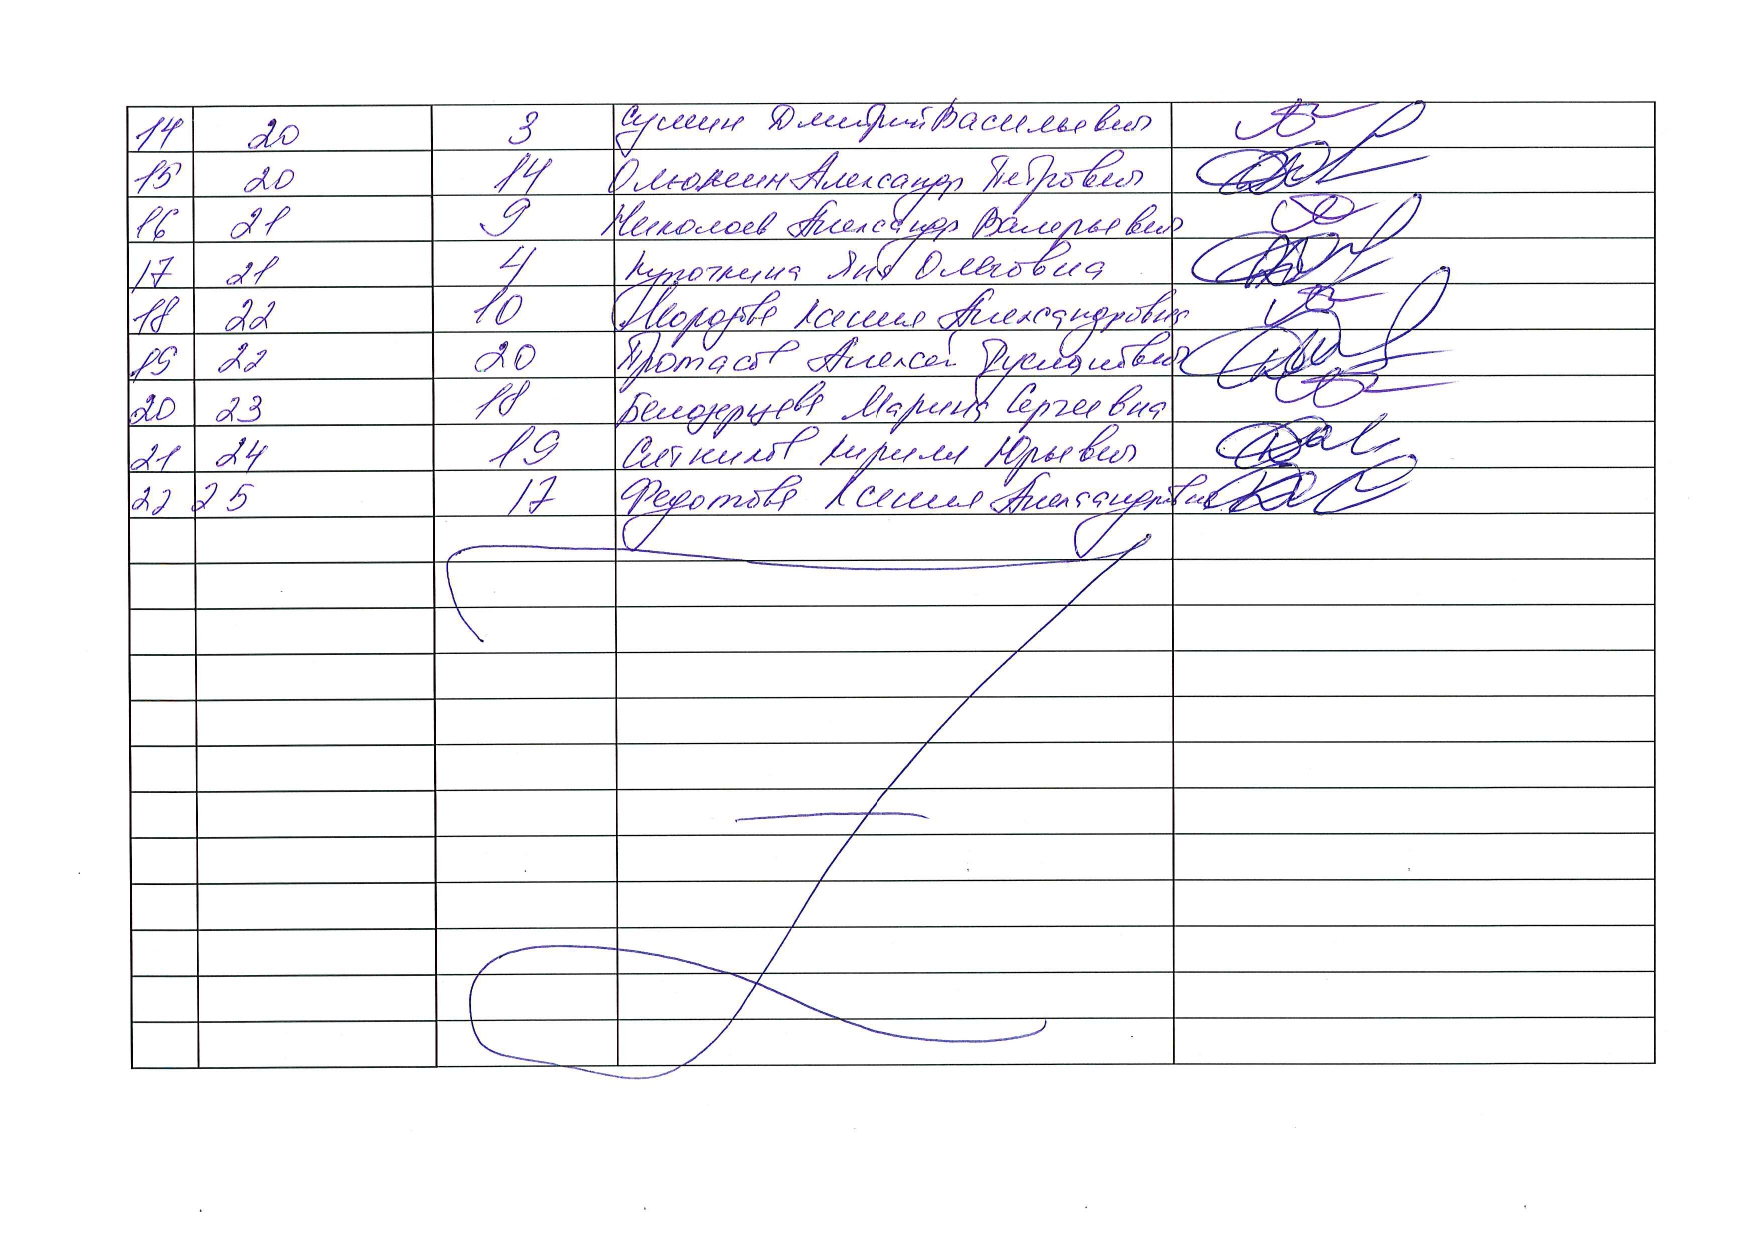 14 20 3 Сумин Дмитрий Васильевич
15 20 14 Олюнин Александр Петрович
16 21 9 Николаев Александр Валерьевич
17 21 4 Курочкина Яна Олеговна
18 22 10 Ксения Александровна
19 22 20 Протасов Алексей Русланович
20 23 18 Белозерцева Марина Сергеевна
21 24 19 Ситников Кирилл Юрьевич
22 25 17 Федотова Ксения Александровна